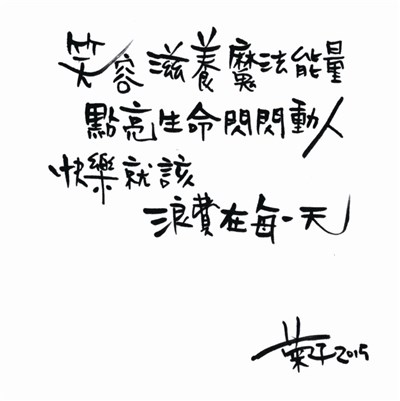 笑容滋養魔法能量
點亮生命閃閃動人
快樂就該
浪費在每一天
葉子2015